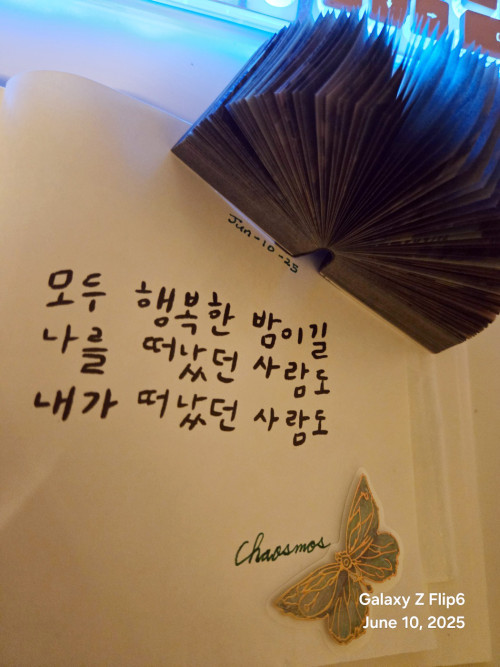 Jun-10-25
모두 행복한 밤이길
나를 떠났던 사람도
내가 떠났던 사람도
Chaosmos
Galaxy Z Flip6
June 10, 2025